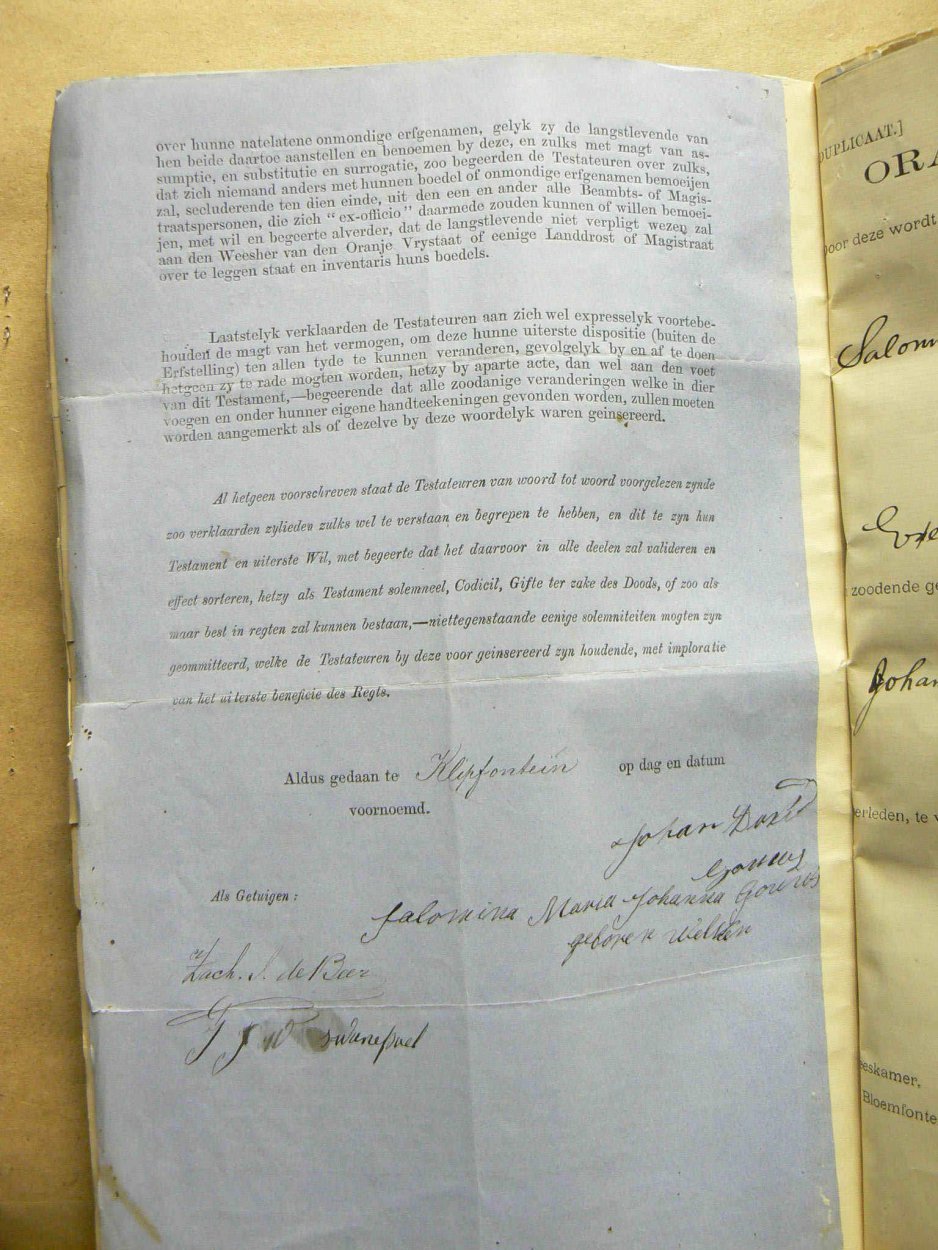 over hunne natelatene onmondige erfgenamen, gelyk zy de langstlevende van
hen beide daartoe aanstellen en benoemen by deze, en zulks met magt van as-
sumptie, en substitutie en surrogatie, zoo begeerden de Testateuren over zulks,
dat zich niemand anders met hunnen boedel of onmondige erfgenamen bemoeijen
zal, secluderende ten dien einde, uit den een en ander alle Beambts- of Magis-
traatspersonen, die zich "ex-officio" daarmede zouden kunnen of willen bemoei-
jen, met wil en begeerte alverder, dat de langstlevende niet verpligt wezen zal
aan den Weesheer van den Oranje Vrystaat of eenige Landdrost of Magistraat
over te leggen staat en inventaris huns boedels.
Laatstelyk verklaarden de Testateuren aan zich wel expresselyk voortebe-
houden de magt van het vermogen, om deze hunne uiterste dispositie (buiten de
Erfstelling) ten allen tyde te kunnen veranderen, gevolgelyk by en af te doen
hetgeen zy te rade mogten worden, hetzy by aparte acte, dan wel aan den voet
van dit Testament,—begeerende dat alle zoodanige veranderingen welke in dier
voegen en onder hunner eigene handteekeningen gevonden worden, zullen moeten
worden aangemerkt als of dezelve by deze woordelyk waren geinsereerd.
Al hetgeen voorschreven staat de Testateuren van woord tot woord voorgelezen zynde
zoo verklaarden zylieden zulks wel te verstaan en begrepen te hebben, en dit te zyn hun
Testament en uiterste Wil, met begeerte dat het daarvoor in alle deelen zal valideren en
effect sorteren, hetzy als Testament solemneel, Codicil, Gifte ter zake des Doods, of zoo als
maar best in regten zal kunnen bestaan,—niettegenstaande eenige solemniteiten mogten zyn
geommitteerd, welke de Testateuren by deze voor geinsereerd zyn houdende, met imploratie
van het uiterste beneficie des Regts.
Aldus gedaan te Klipfontein op dag en datum
voornoemd.
Johan
Gouws
Als Getuigen:
Salomina Maria Johanna Gouws
geboren Welken
Zach. J. de Beer
Swanepoel
DUPLICAAT.]
ORA
oor deze wordt
Salom
zoodende ge
Johan
erleden, te v
eeskamer,
Bloemfonte